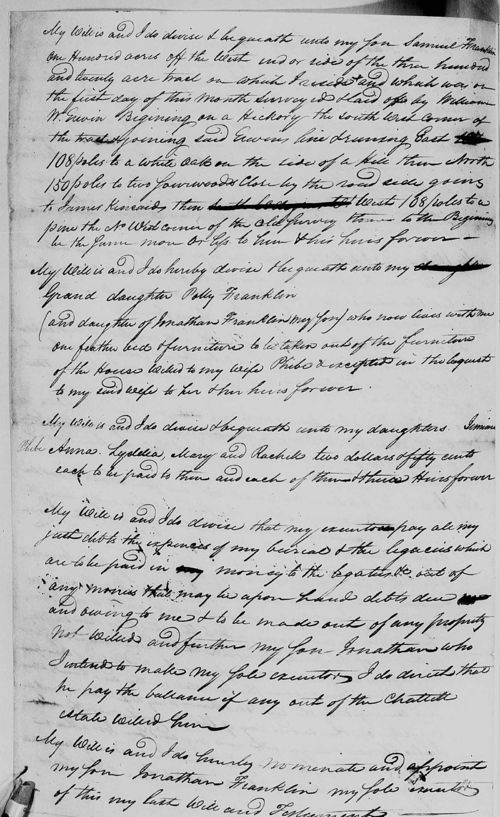 My Will is and I do divise & bequeath unto my Son Samuel Franklin
one Hundred acres off the West end or side of the three hundred
and twenty acre tract on which I reside & and which was on
the first day of this Month Surveyed & laid off by William
W. Erwin Begining on a Hickory the South West Corner of
the tract & joining said Erwins line & runing East
108 poles to a white Oak on the side of a Hill then North
150 poles to two Sourwoods Close by the road side going
to James Kincaids then West 108 poles to a
pine the No West corner of the Old Survey thence to the Begining
be the Same more or less to him & his heirs forever
My Will is and I do hereby divise & bequeath unto my
Grand daughter Polly Franklin
(and daughter of Jonathan Franklin my Son) who now lives with me
one feather bed & furniture to be taken out of the furniture
of the House Willed to my wife Phebe & excepted in the bequests
to my said wife to her & her heirs forever.
My Will is and I do divise & bequeath unto my daughters
Phebe Anna. Lyddia, Mary and Rachell two dollars & fifty cents
each to be paid to them and each of them & there Heirs forever
My Will is and I do divise that my executors pay all my
just debts the expences of my burial & the legacies which
are to be paid in money to the legatees &c out of
any monies that may be upon hand debts due
and owing to me & to be made out of any property
not Willed and further my Son Jonathan who
I intend to make my Sole executor I do direct that
he pay the ballance if any out of the Chattell
estate Willed him
My Will is and I do hereby nominate and appoint
my Son Jonathan Franklin my Sole executor
of this my last Will and Testament